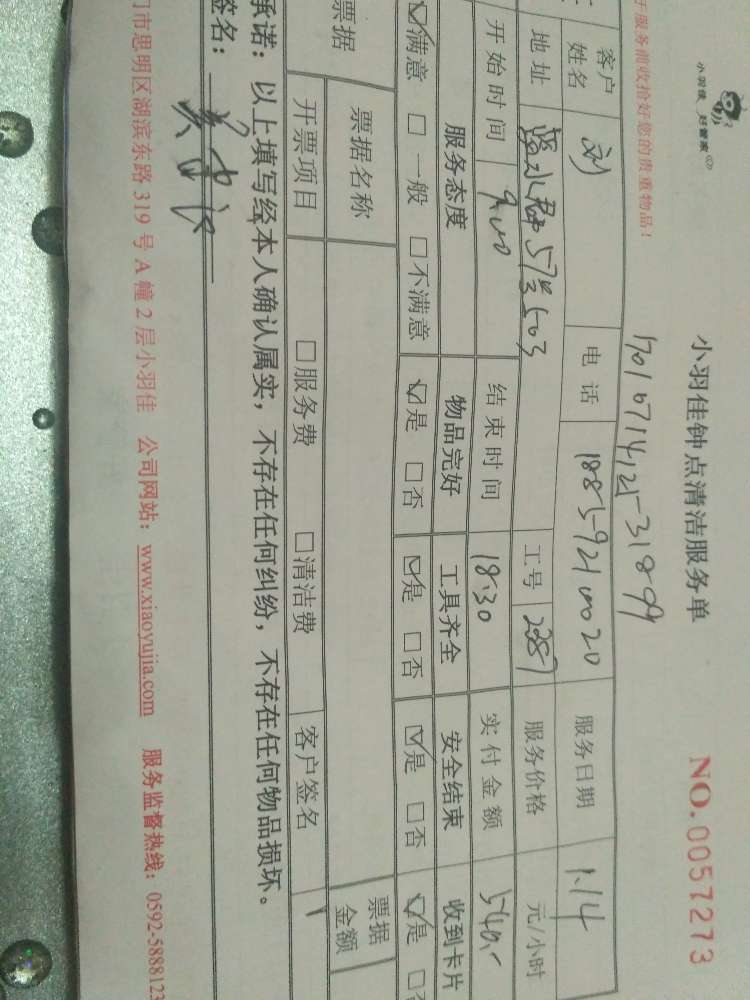 小羽佳 好管家
小羽佳钟点清洁服务单
NO.0057273
服务前收拾好您的贵重物品!
客户姓名 刘 电话 服务日期 1.14
地址 工号 服务价格 元/小时
开始时间 9:00 结束时间 18:30 实付金额 540
服务态度 物品完好 工具齐全 安全结束 收到卡片
☑满意 □一般 □不满意 ☑是 □否 ☑是 □否 ☑是 □否 ☑是 □
票据 票据名称 票据金额
开票项目 □服务费 □清洁费 客户签名
承诺:以上填写经本人确认属实,不存在任何纠纷,不存在任何物品损坏。
签名:
门市思明区湖滨东路319号A幢2层小羽佳 公司网站:www.xiaoyujia.com 服务监督热线:0592-5888123